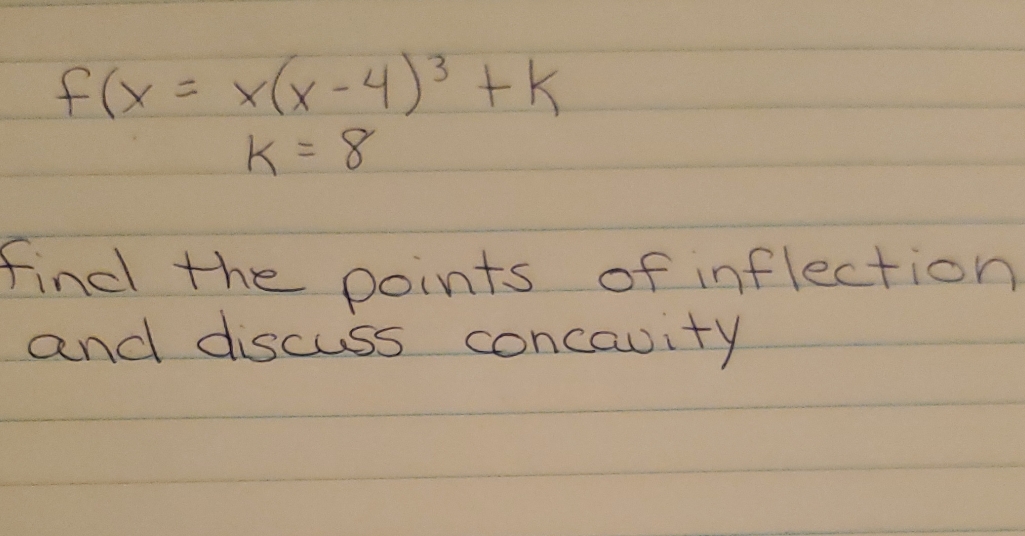 f(x = x(x-4)³ + k
k = 8
find the points of inflection
and discuss concavity